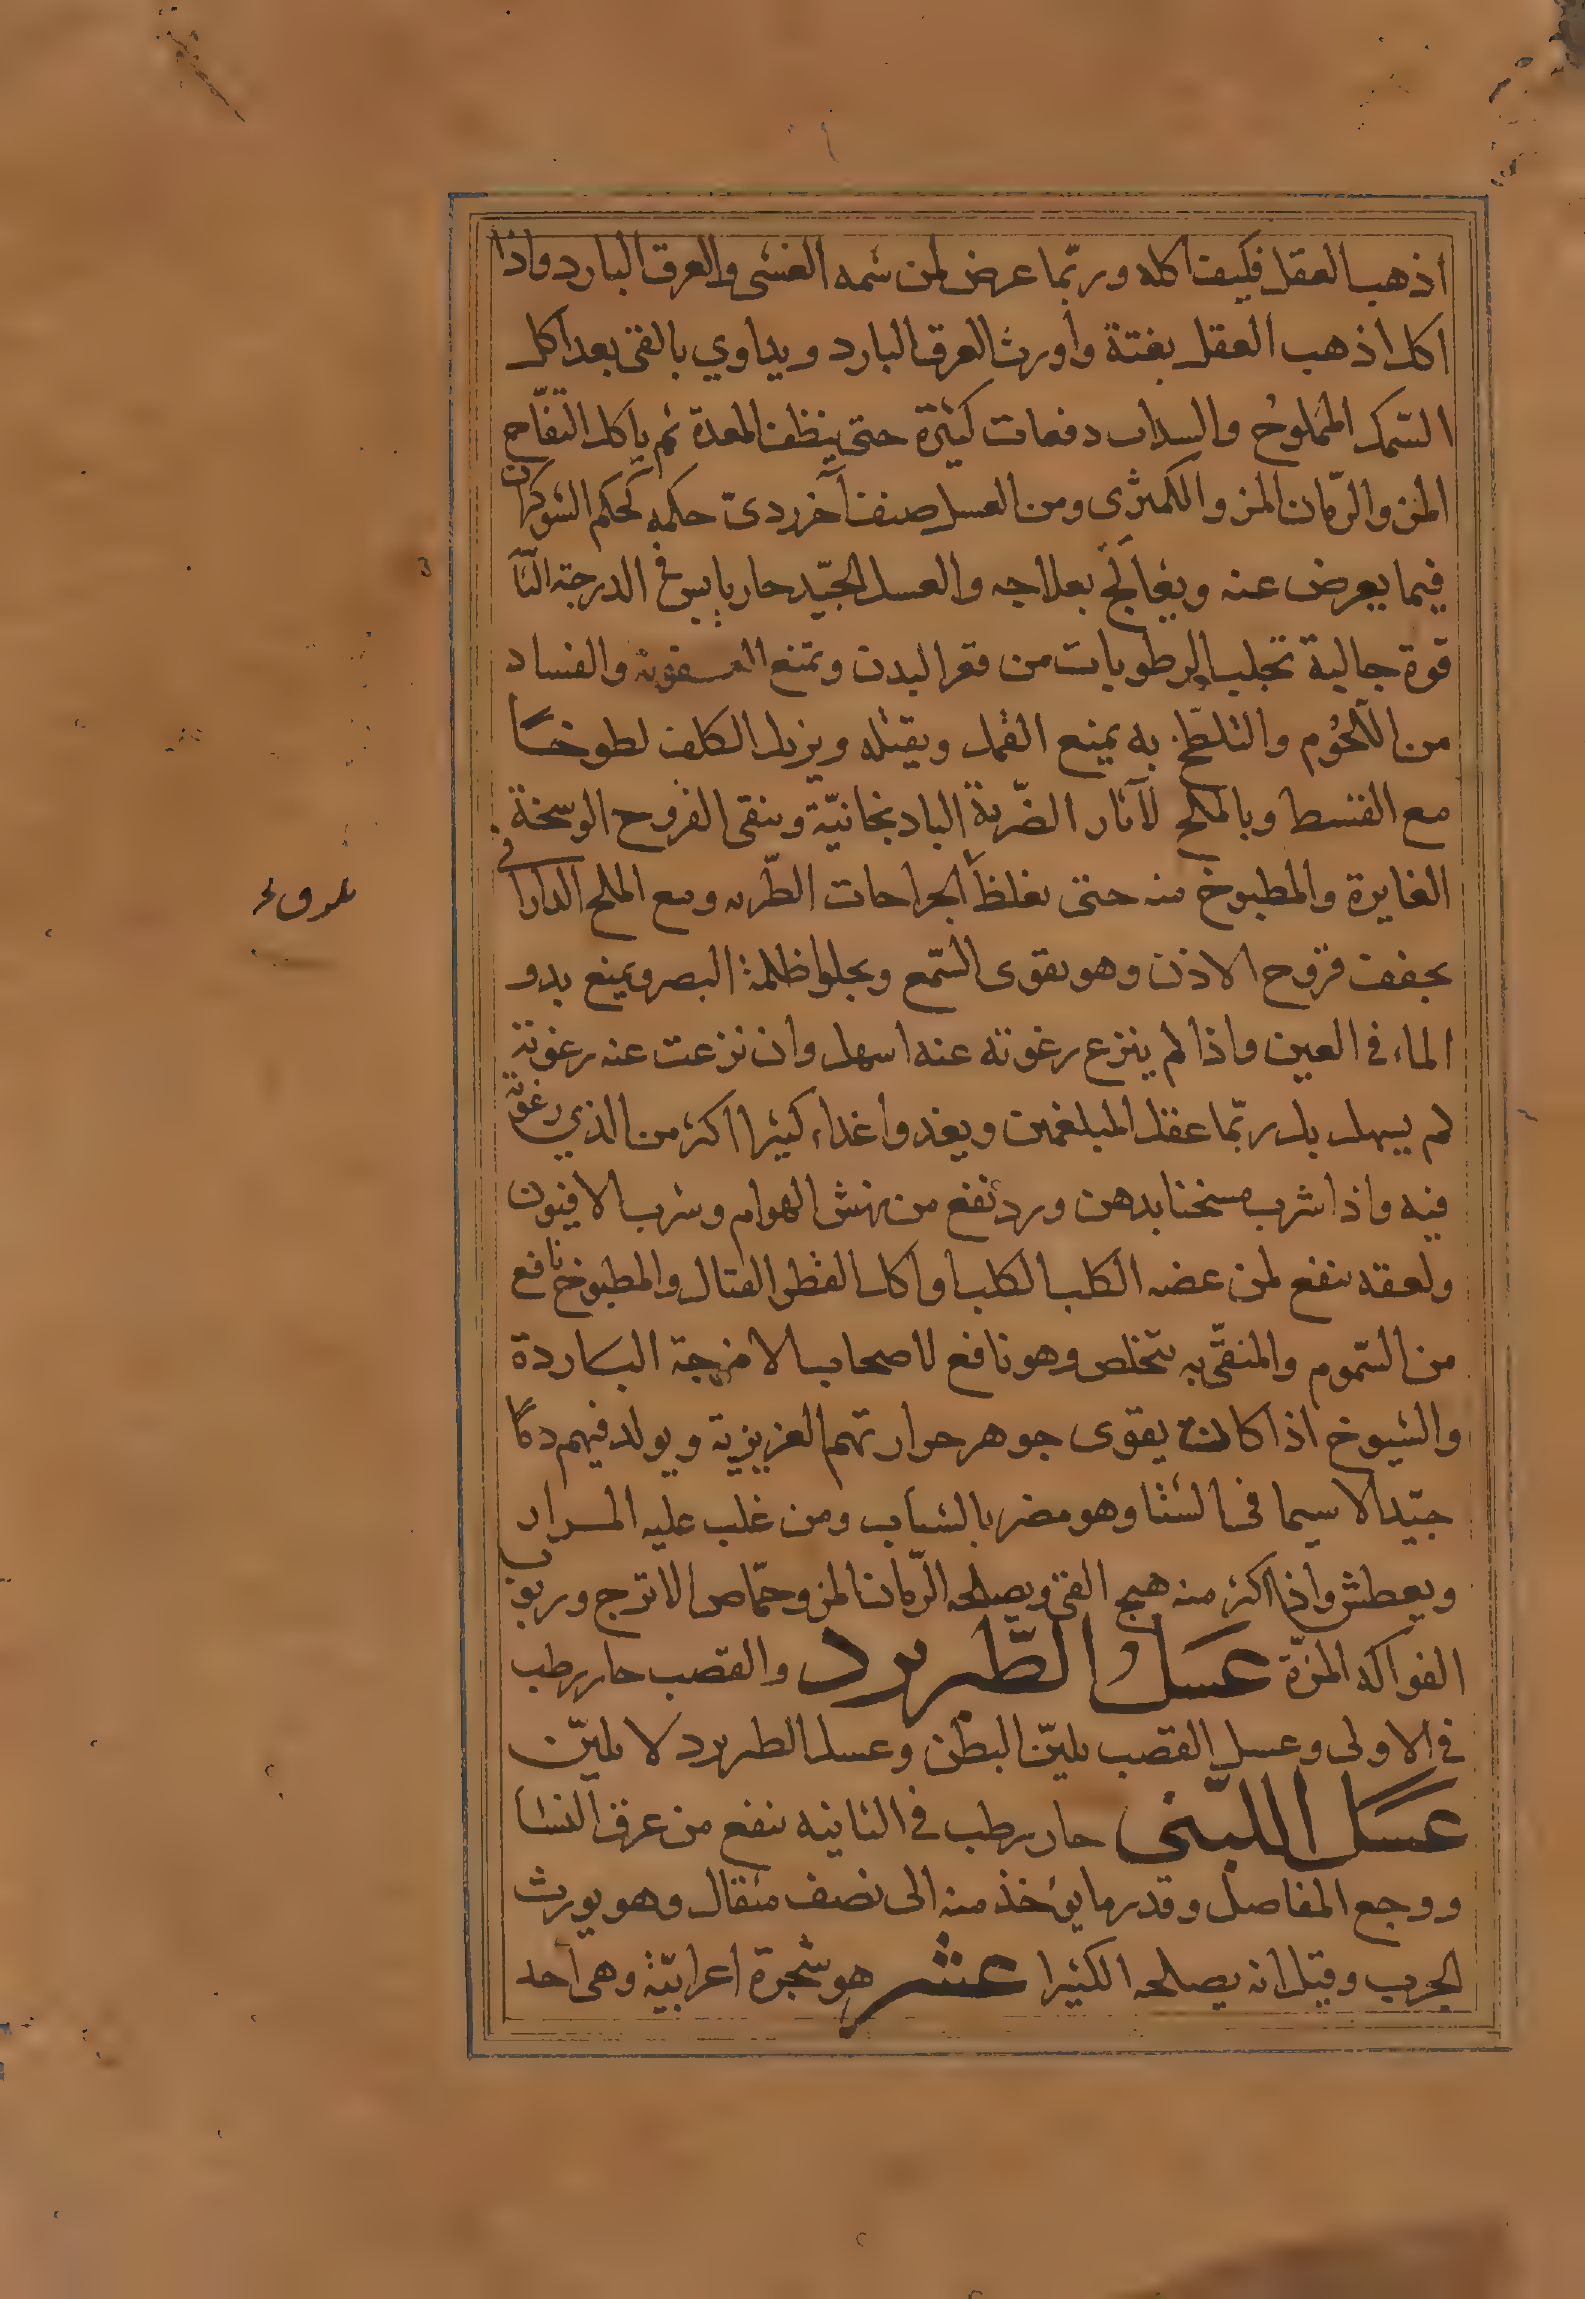 اذهب العقل فكيف اكله وربّما عرض لمن شمه الغشى والعرق البارد واذا
اكل اذهب العقل بغتة واورث العرق البارد ويداوي بالقئ بعد اكل
السّمك المملوح والسداب دفعات كثيرة حتى ينظف المعدة ثم ياكل التفّاح
المز والرّمان المز والكمثرى ومن العسل صنف آخر ردئ حكمه كحكم الشوكران
فيما يعرض عنه ويعالج بعلاجه والعسل الجيّد حار يابس في الدرجة
قوة جالية تجلب الرطوبات من قعر البدن وتمنع العفونة والفساد
من اللّحُوم والتلطّخ به يمنع القمل ويقتله ويزيل الكلف لطوخا
مع القسط وبالملح لآثار الضّربة الباذنجانيّة وينقى القروح الوسخة
الغايرة والمطبوخ منه حتى يغلظ الجراحات الطّرية ومع الملح
يجفف قروح الاذن وهو يقوى السّمع ويجلوا ظلمة البصر ويمنع بدو
الماء في العين واذا لم ينزع رغوته عنه اسهل وان نزعت عنه رغوته
لم يسهل بل ربّما عقل المبلغمين ويغذوا غذاء كثيرا اكثر من الذي رغوته
فيه واذا شرب مسخنا بدهن ورد نفع من نهش الهوام وشرب الافيون
ولعقه ينفع لمن عضه الكلب الكلب او اكل الفطر القتال والمطبوخ نافع
من السّموم والمتقّى به يتخلص وهو نافع لاصحاب الامزجة الباردة
والشيوخ اذا كانت يقوى جوهر حرارتهم الغريزية ويولد فيهم دمًا
جيّدا لاسيما فى الشتا وهو مضر بالشباب ومن غلب عليه المرار
ويعطش واذا اكثر منه هيج القئ ويصلحه الرّمان المز وحمّاض الاترج وربوب
الفواكه المزّة عسل الطّبرزد والقصب حار رطب
في الاولى وعسل القصب يليّن البطن وعسل الطبرزد لا يليّن
عسل اللبنى حار رطب في الثانيه ينفع من عرق النسا
ووجع المفاصل وقدر ما يؤخذ منه الى نصف مثقال وهو يورث
الجرب وقيل انه يصلحه الكثيرا عشر هو شجرة اعرابيّة وهى احد